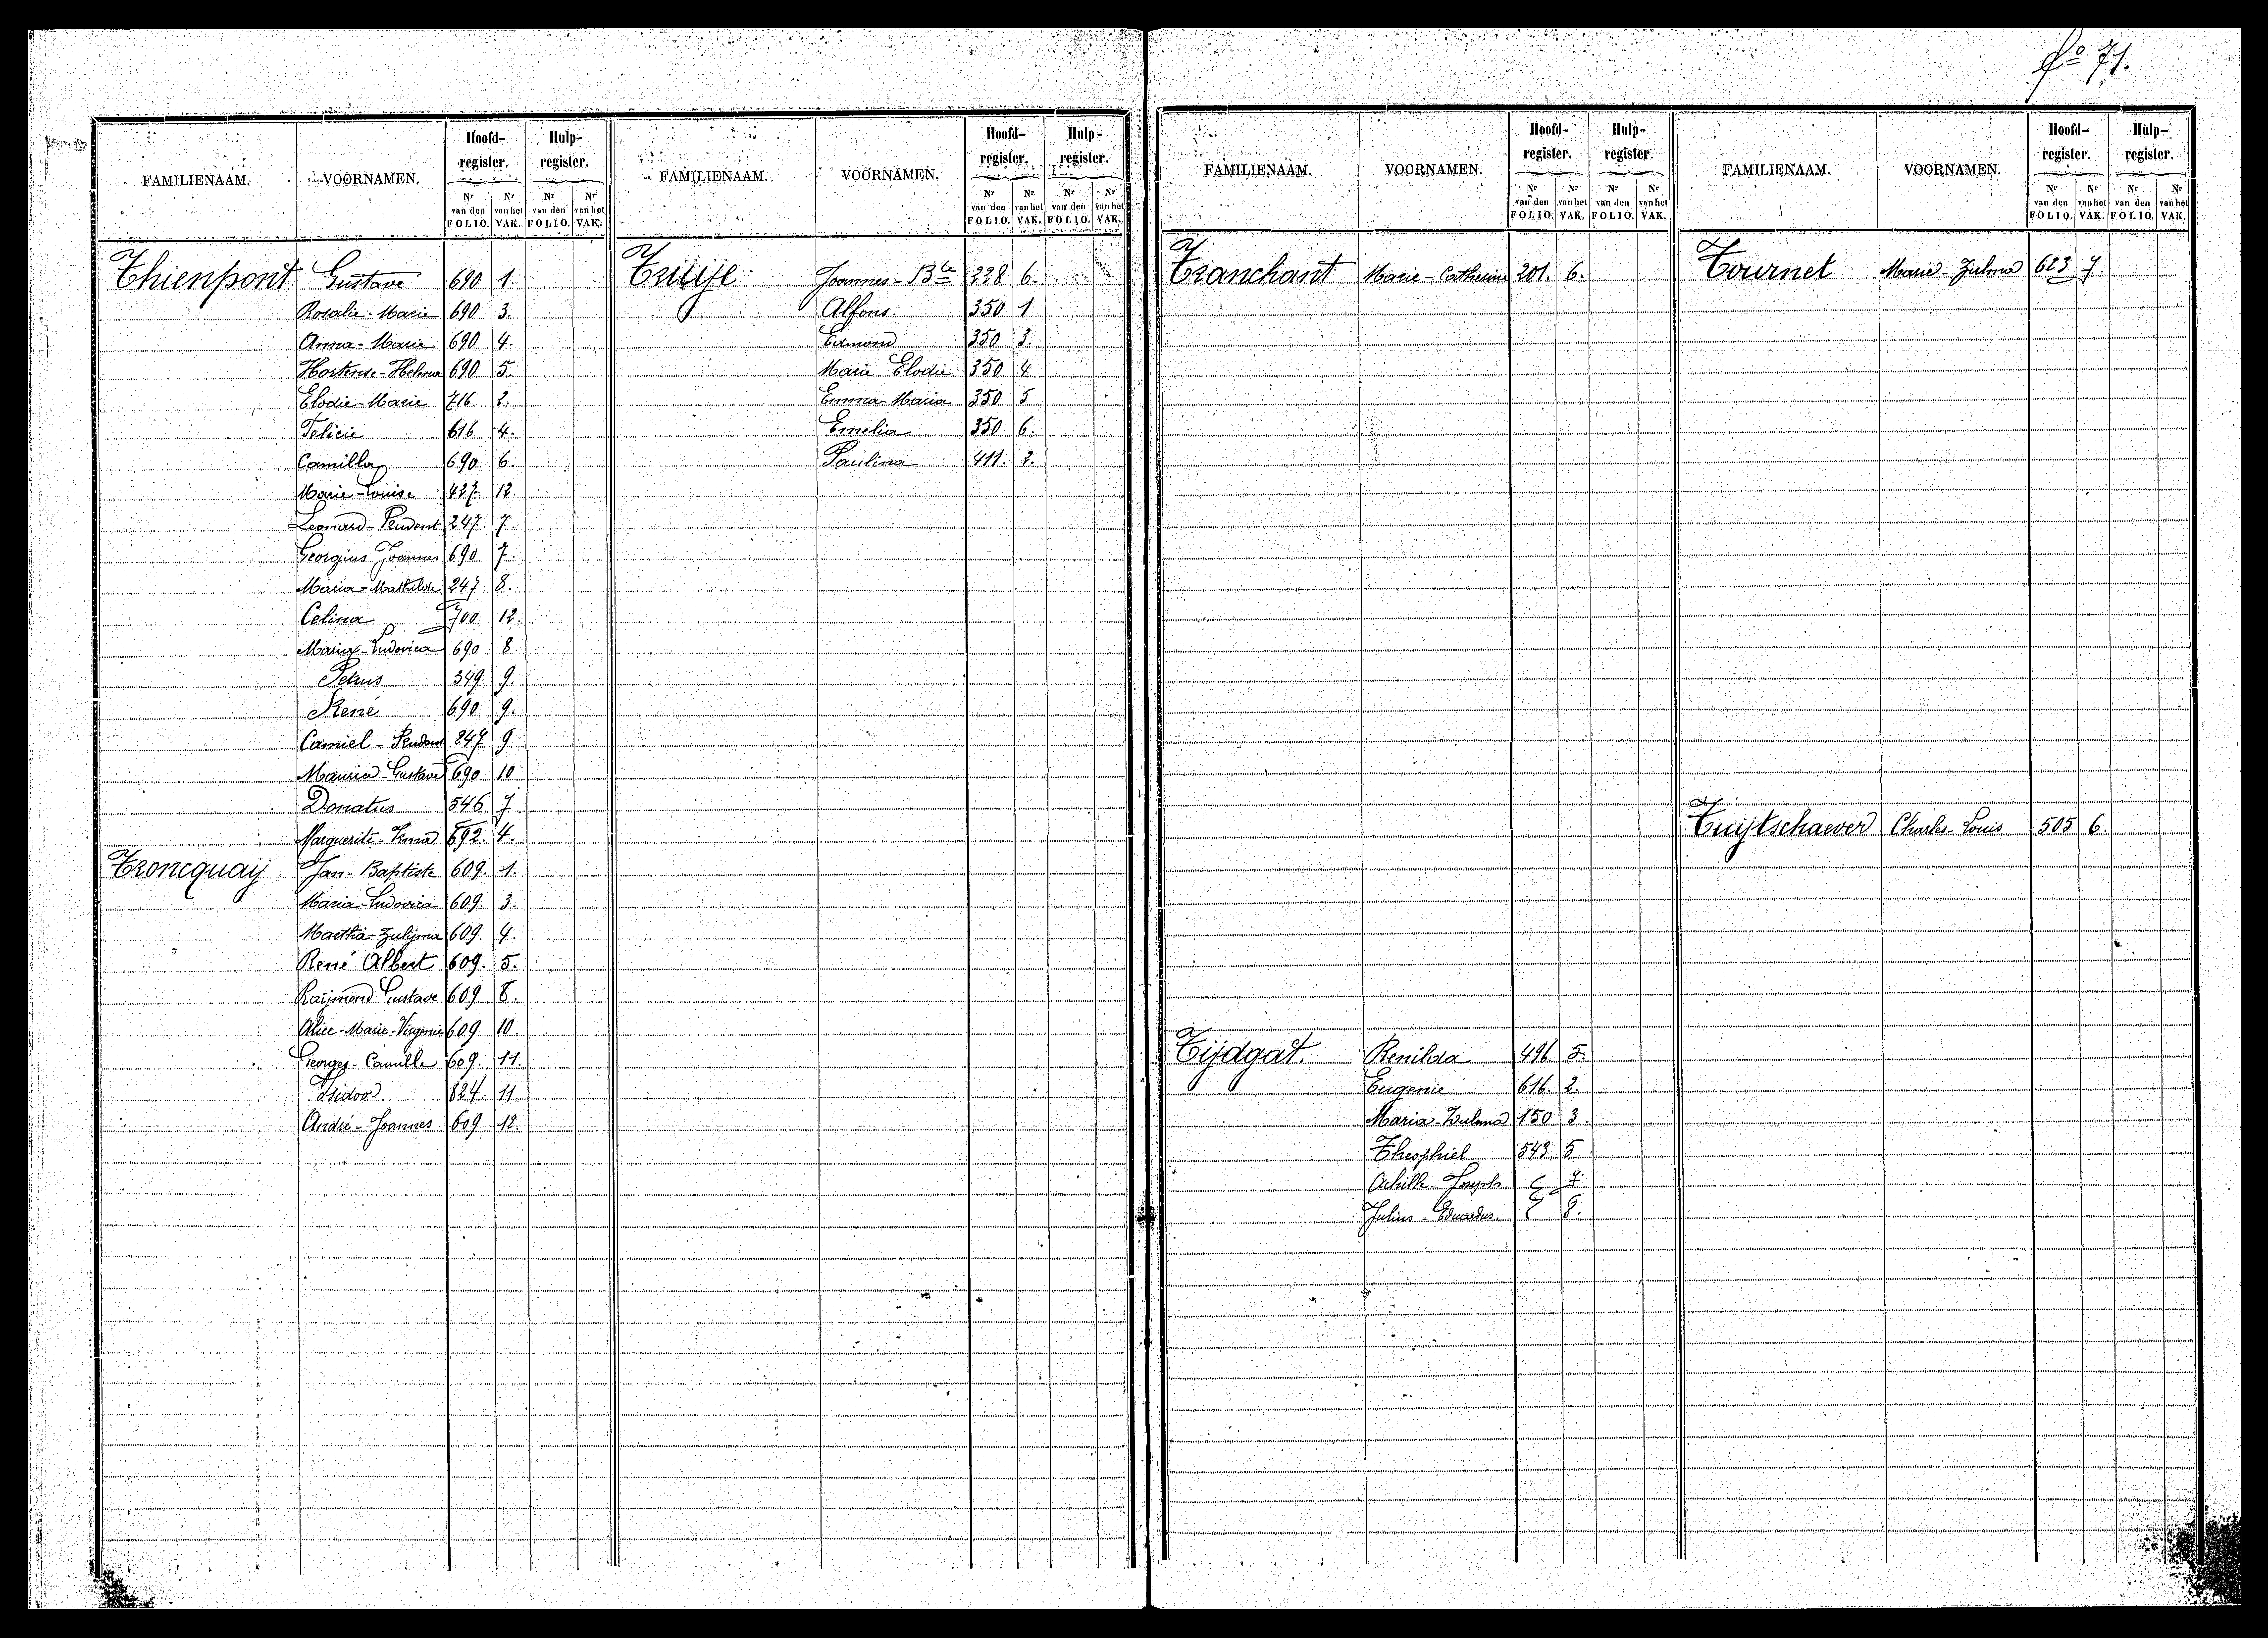 fo 71.
FAMILIENAAM. VOORNAMEN. Hoofd-register. Hulp-register.
Nr van den FOLIO. Nr van het VAK. Nr van den FOLIO. Nr van het VAK.
Thienpont Gustave 690 1.
Rosalie-Marie 690 3.
Anna-Marie 690 4.
Hortense-Helena 690 5.
Elodie-Marie 716 2.
Felicie 616 4.
Camilla 690 6.
Marie-Louise 427 12.
Leonard-Prudent 247 7.
Georgius Joannes 690 7.
Maria-Mathilde 247 8.
Celina 700 12.
Maria-Ludovica 690 8.
Petrus 349 9.
René 690 9.
Camiel-Prudent 247 9
Maurice-Gustave 690 10
Donatus 546 7
Marguerite-Irma 692 4.
Troncquaij Jan-Baptiste 609. 1.
Maria-Ludovica 609. 3.
Martha-Zulijma 609. 4.
René Albert 609. 5.
Raijmond Gustave 609 8.
Alice-Marie-Virginie 609 10.
Georges-Camille 609. 11.
Isidoor 824 11
André-Joannes 609 12.
FAMILIENAAM. VOORNAMEN. Hoofd-register. Hulp-register.
Nr van den FOLIO. Nr van het VAK. Nr van den FOLIO. Nr van het VAK.
Truije Joannes-Bte 228 6.
Alfons 350 1
Edmond 350 3.
Marie Elodie 350 4
Emma-Maria 350 5
Emelia 350 6.
Paulina 411. 2.
FAMILIENAAM. VOORNAMEN. Hoofd-register. Hulp-register.
Nr van den FOLIO. Nr van het VAK. Nr van den FOLIO. Nr van het VAK.
Tranchant Marie-Catherine 201. 6.
Tijdgat. Renilda 496 5.
Eugenie 616. 2.
Maria-Zulma 150 3.
Theophiel 543 5
Achille-Joseph 7
Julius-Eduardus 8.
FAMILIENAAM. VOORNAMEN. Hoofd-register. Hulp-register.
Nr van den FOLIO. Nr van het VAK. Nr van den FOLIO. Nr van het VAK.
Tournet Marie-Zulma 623 7.
Tuijtschaever Charles-Louis 505 6.